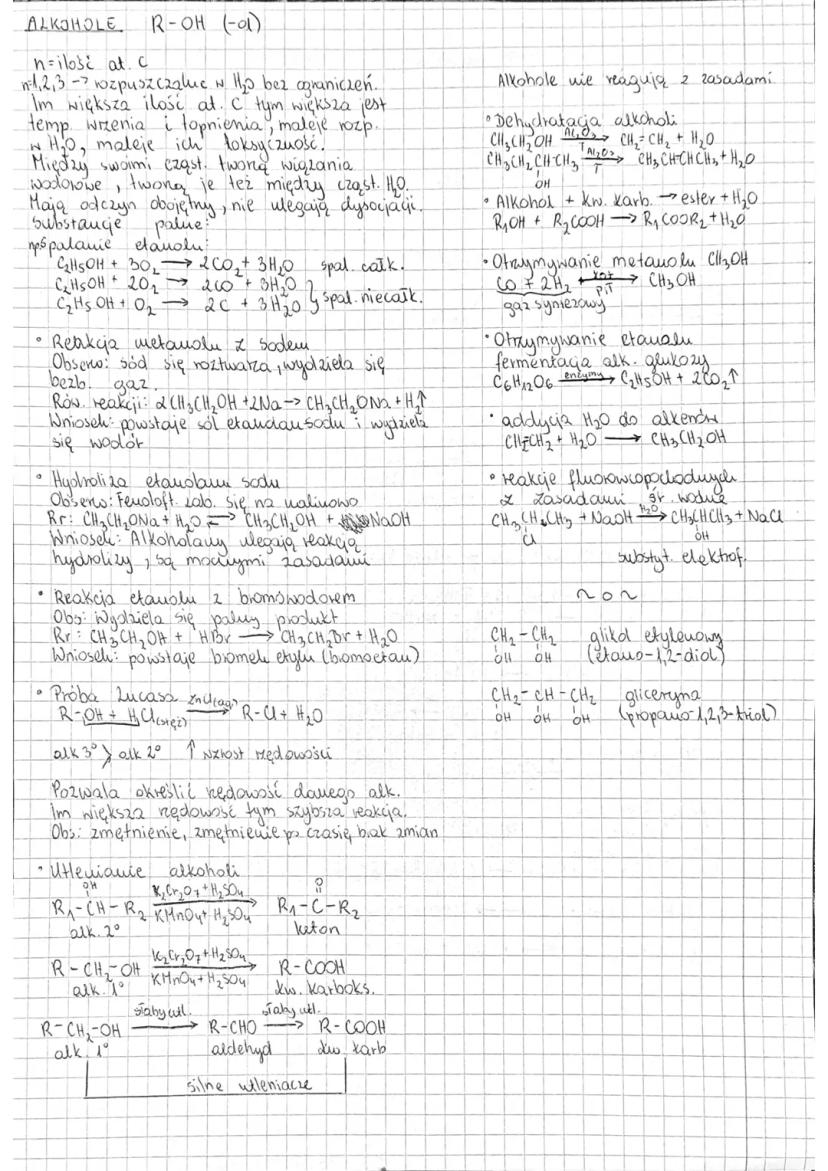 ALKOHOLE R-OH (-ol)
n=ilość at. C
n=1,2,3 -> rozpuszczalne w H₂O bez ograniczeń.
Im większa ilość at. C tym większa jest
temp. wrzenia i topnienia, maleje rozp.
w H₂O, maleje ich toksyczność.
Między swoimi cząst. tworzą wiązania
wodorowe, tworzą je też między cząst. H₂O.
Mają odczyn obojętny, nie ulegają dysocjacji.
Substancje palne:
np. spalanie etanolu:
C₂H₅OH + 3O₂ → 2CO₂ + 3H₂O spal. całk.
C₂H₅OH + 2O₂ → 2CO + 3H₂O
C₂H₅OH + O₂ → 2C + 3H₂O } spal. niecałk.
• Reakcja metanolu z sodem
Obserw: sód się roztwarza, wydziela się
bezb. gaz.
Rów. reakcji: 2CH₃CH₂OH + 2Na -> CH₃CH₂ONa + H₂↑
Wniosek: powstaje sól etanolan sodu i wydziela
się wodór
• Hydroliza etanolanu sodu
Obserw: Fenoloft. zab. się na malinowo
Rr: CH₃CH₂ONa + H₂O ⇌ CH₃CH₂OH + NaOH
Wniosek: Alkoholany ulegają reakcją
hydrolizy, są mocnymi zasadami
• Reakcja etanolu z bromowodorem
Obs: Wydziela się palny produkt
Rr: CH₃CH₂OH + HBr → CH₃CH₂Br + H₂O
Wniosek: powstaje bromek etylu (bromoetan)
• Próba Lucasa
R-OH + HCl(stęż) ZnCl(aq) → R-Cl + H₂O
alk 3° > alk 2° ↑ wzrost rzędowości
Pozwala określić rzędowość danego alk.
Im większa rzędowość tym szybsza reakcja.
Obs: zmętnienie, zmętnienie po czasie, brak zmian
• Utlenianie alkoholi
OH K₂Cr₂O₇ + H₂SO₄ O
R₁-CH-R₂ → R₁-C-R₂
alk. 2° KMnO₄ + H₂SO₄ keton
K₂Cr₂O₇ + H₂SO₄
R-CH₂-OH → R-COOH
alk. 1° KMnO₄ + H₂SO₄ kw. karboks.
słaby utl. słaby utl.
R-CH₂-OH → R-CHO → R-COOH
alk. 1° aldehyd kw. karb
silne utleniacze
Alkohole nie reagują z zasadami
• Dehydratacja alkoholi
CH₃CH₂OH Al₂O₃ T → CH₂=CH₂ + H₂O
CH₃CH₂CH-CH₃ Al₂O₃ T → CH₃CH=CHCH₃ + H₂O
OH
• Alkohol + kw. karb. → ester + H₂O
R₁OH + R₂COOH → R₁COOR₂ + H₂O
• Otrzymywanie metanolu CH₃OH
CO + 2H₂ kat p,T → CH₃OH
gaz syntezowy
• Otrzymywanie etanolu
fermentacja alk. glukozy
C₆H₁₂O₆ enzymy → C₂H₅OH + 2CO₂↑
• addycja H₂O do alkenów
CH₂=CH₂ + H₂O → CH₃CH₂OH
• reakcje fluorowcopochodnych
z zasadami śr. wodne
CH₃CHCH₃ + NaOH H₂O → CH₃CHCH₃ + NaCl
Cl OH
substyt. elektrof.
~ o ~
CH₂-CH₂ glikol etylenowy
OH OH (etano-1,2-diol)
CH₂-CH-CH₂ gliceryna
OH OH OH (propano-1,2,3-triol)